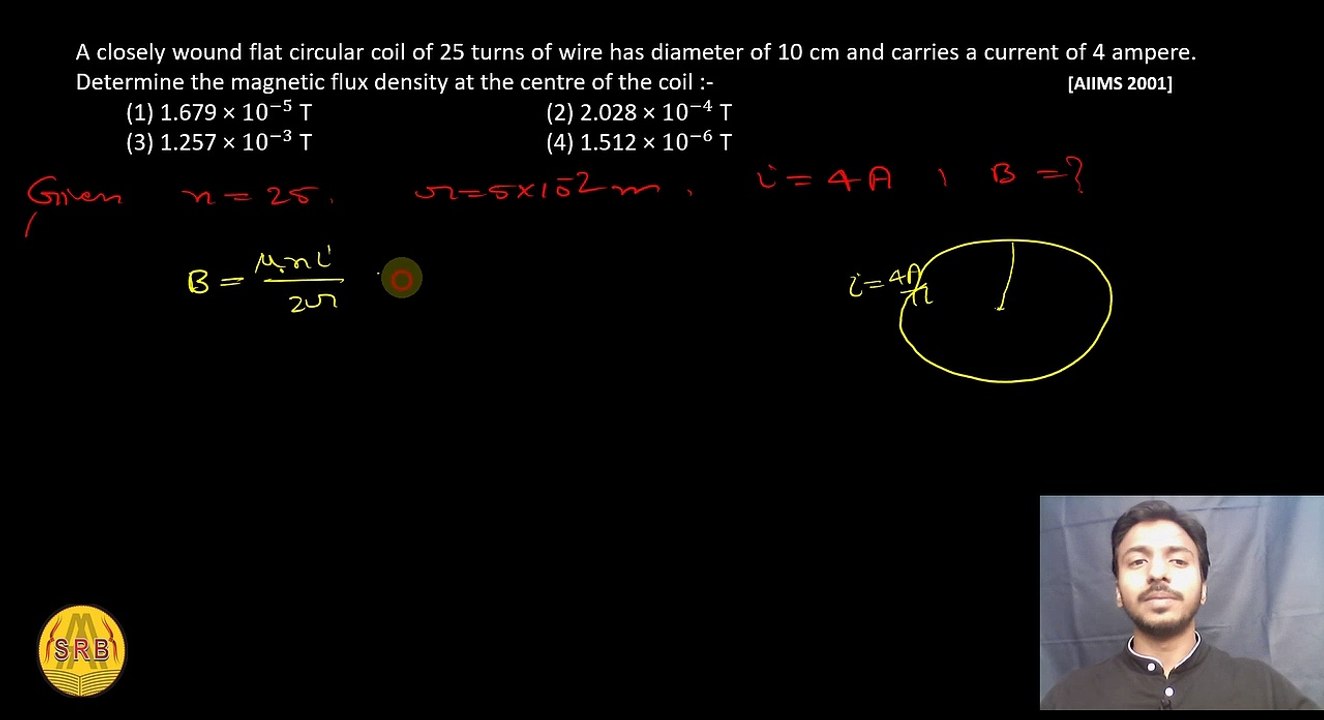 A closely wound flat circular coil of 25 turns of wire has diameter of 10 cm and carries a current of 4 ampere.
Determine the magnetic flux density at the centre of the coil :- [AIIMS 2001]
(1) 1.679 × 10⁻⁵ T (2) 2.028 × 10⁻⁴ T
(3) 1.257 × 10⁻³ T (4) 1.512 × 10⁻⁶ T
Given n = 25, r = 5×10⁻² m, i = 4A, B = ?
B = μ₀ni / 2r
i = 4A
SRB